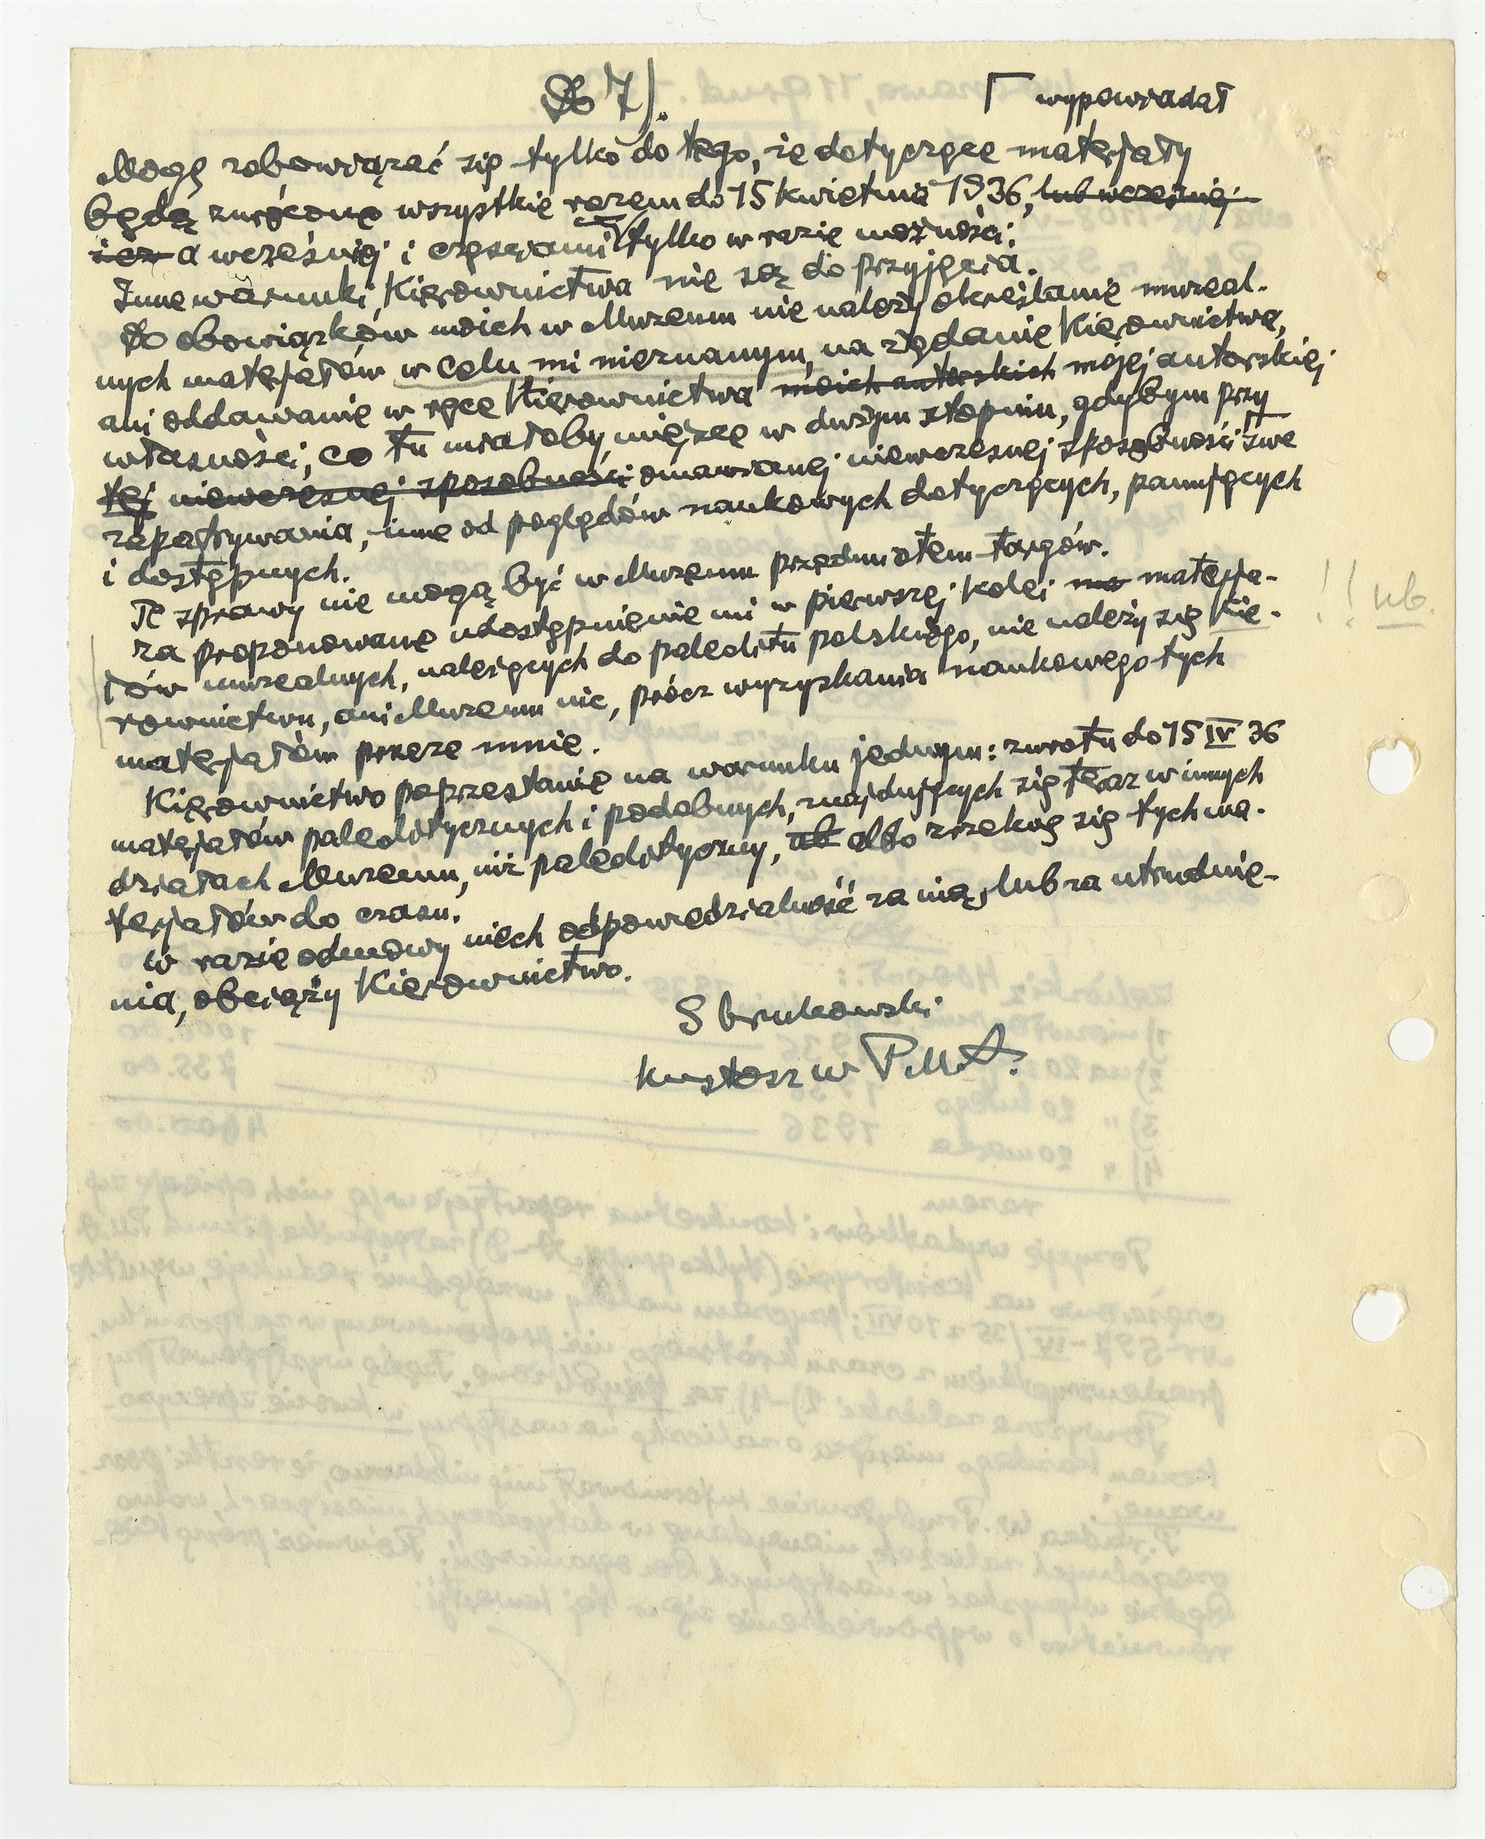 Do 7).
⌈ wypowiadał
Mogę zobowiązać się tylko do tego, że dotyczące materjały
będą zwrócone wszystkie razem do 15 kwietnia 1936, lub wcześniej
a wcześniej i częściami tylko w razie możności.
Inne warunki Kierownictwa nie są do przyjęcia.
Do obowiązków moich w Muzeum nie należy określanie muzeal-
nych materjałów w celu mi nieznanym, na żądanie Kierownictwa,
ani oddawanie w ręce Kierownictwa moich autorskich mojej autorskiej
własności, co tu miałoby miejsce w dużym stopniu, gdybym przy
tej niewczesnej sposobności omawianej niewczesnej sposobności swe
zapatrywania, inne od poglądów naukowych dotyczących, panujących
i dostępnych.
Te sprawy nie mogą być w Muzeum przedmiotem targów.
Za proponowane udostępnienie mi w pierwszej kolei materja-
łów muzealnych, należących do paleolitu polskiego, nie należy się Kie-
rownictwu, ani Muzeum nic, prócz wyzyskania naukowego tych
materjałów przeze mnie.
!! nb.
Kierownictwo poprzestanie na warunku jednym: zwrotu do 15 IV 36
materjałów paleolitycznych i podobnych, znajdujących się teraz w innych
działach Muzeum, niż paleolityczny, alb albo zrzeknę się tych ma-
terjałów do czasu.
W razie odmowy niech odpowiedzialność za nią, lub za utrudnie-
nia, obciąży Kierownictwo.
S Krukowski
kustosz w P.M.A.